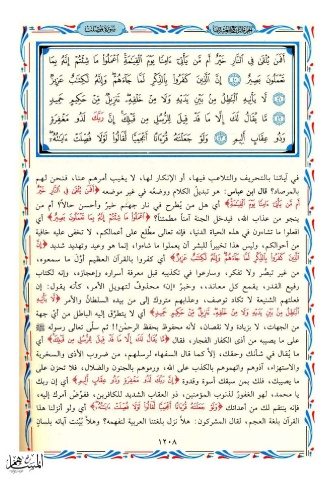 أَفَمَن يُلْقَىٰ فِي ٱلنَّارِ خَيْرٌ أَم مَّن يَأْتِيٓ ءَامِنًا يَوْمَ ٱلْقِيَٰمَةِ ٱعْمَلُوا۟ مَا شِئْتُمْ إِنَّهُۥ بِمَا
تَعْمَلُونَ بَصِيرٌ ٤٠ إِنَّ ٱلَّذِينَ كَفَرُوا۟ بِٱلذِّكْرِ لَمَّا جَآءَهُمْ وَإِنَّهُۥ لَكِتَٰبٌ عَزِيزٌ
٤١ لَّا يَأْتِيهِ ٱلْبَٰطِلُ مِنۢ بَيْنِ يَدَيْهِ وَلَا مِنْ خَلْفِهِۦ تَنزِيلٌ مِّنْ حَكِيمٍ حَمِيدٍ
٤٢ مَّا يُقَالُ لَكَ إِلَّا مَا قَدْ قِيلَ لِلرُّسُلِ مِن قَبْلِكَ إِنَّ رَبَّكَ لَذُو مَغْفِرَةٍ
وَذُو عِقَابٍ أَلِيمٍ ٤٣ وَلَوْ جَعَلْنَٰهُ قُرْءَانًا أَعْجَمِيًّا لَّقَالُوا۟ لَوْلَا فُصِّلَتْ ءَايَٰتُهُۥٓ
في آياتنا بالتحريف والتلاعب فيها، أو الإنكار لها، لا يغيب أمرهم عنا، فنحن لهم
بالمرصاد؟ قال ابن عباس: هو تبديل الكلام ووضعه في غير موضعه ﴿أَفَمَن يُلْقَىٰ فِي ٱلنَّارِ خَيْرٌ
أَم مَّن يَأْتِيٓ ءَامِنًا يَوْمَ ٱلْقِيَٰمَةِ﴾ أي هل من يُطرح في نار جهنم خيرٌ وأحسن حالًا؟ أم من
ينجو من عذاب الله، فيدخل الجنة آمنًا مطمئنًا؟ ﴿ٱعْمَلُوا۟ مَا شِئْتُمْ إِنَّهُۥ بِمَا تَعْمَلُونَ بَصِيرٌ﴾ أي
افعلوا ما تشاءون في هذه الحياة الدنيا، فإنه تعالى مطَّلع على أعمالكم، لا تخفى عليه خافية
من أحوالكم، وليس هذا تخييرًا للبشر أن يعملوا ما شاءوا، إنما هو وعيد وتهديد شديد ﴿إِنَّ
ٱلَّذِينَ كَفَرُوا۟ بِٱلذِّكْرِ لَمَّا جَآءَهُمْ وَإِنَّهُۥ لَكِتَٰبٌ عَزِيزٌ﴾ أي كفروا بالقرآن العظيم أوَّل ما سمعوه،
من غير تبصُّر ولا تفكر، وسارعوا في تكذيبه قبل معرفة أسراره وإعجازه، وإنه لكتاب
رفيع القدر، يقمع كل معاند، وخبرُ ﴿إن﴾ محذوف لتهويل الأمر، كأنه يقول: إن
فعلتهم الشنيعة لا تكاد توصف، وعذابهم متروك إلى من بيده السلطان والأمر ﴿لَّا يَأْتِيهِ
ٱلْبَٰطِلُ مِنۢ بَيْنِ يَدَيْهِ وَلَا مِنْ خَلْفِهِۦ تَنزِيلٌ مِّنْ حَكِيمٍ حَمِيدٍ﴾ أي لا يتطرَّق إليه الباطل من أيّ جهة
من الجهات، لا بزيادة ولا نقصان، لأنه محفوظ بحفظ الرحمن!! ثم سلَّى تعالى رسوله ﷺ
على ما يصيبه من أذى الكفار الفجار، فقال ﴿مَّا يُقَالُ لَكَ إِلَّا مَا قَدْ قِيلَ لِلرُّسُلِ مِن قَبْلِكَ﴾ أي
ما يُقال في شأنك وحقك، إلَّا كما قال السفهاء لرسلهم، من ضروب الأذى والسخرية
والاستهزاء، آذوهم واتهموهم بالكذب على الله، ورموهم بالجنون والضلال، فلا تحزن على
ما يصيبك، فلك بمن سبقك أسوة وقدوة ﴿إِنَّ رَبَّكَ لَذُو مَغْفِرَةٍ وَذُو عِقَابٍ أَلِيمٍ﴾ أي إن ربك
يا محمد، لهو الغفورُ لذنوب المؤمنين، ذو العقاب الشديد للكافرين، ففوِّض أمرك إليه،
فإنه ينتقم لك من أعدائك ﴿وَلَوْ جَعَلْنَٰهُ قُرْءَانًا أَعْجَمِيًّا لَّقَالُوا۟ لَوْلَا فُصِّلَتْ ءَايَٰتُهُۥٓ﴾ أي ولو أنزلنا هذا
القرآن بلغة العجم، لقال المشركون: هلَّا نزل بلغتنا العربية لنفهمه؟ وهلَّا بُيِّنت آياته بلسانٍ
١٢٠٨